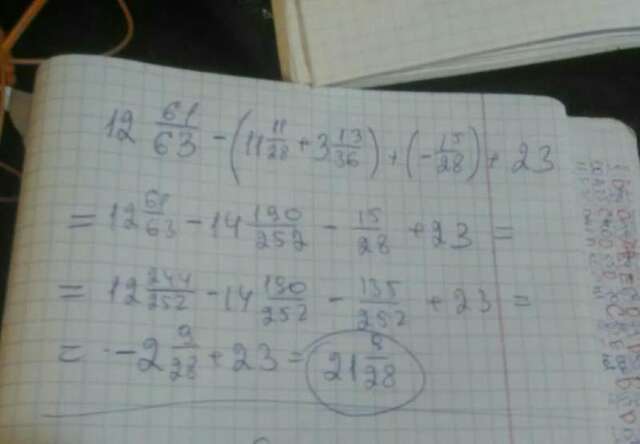 12 61/63 - (11 11/28 + 3 13/36) + (- 15/28) + 23
= 12 61/63 - 14 190/252 - 15/28 + 23 =
= 12 244/252 - 14 190/252 - 135/252 + 23 =
= -2 9/28 + 23 =